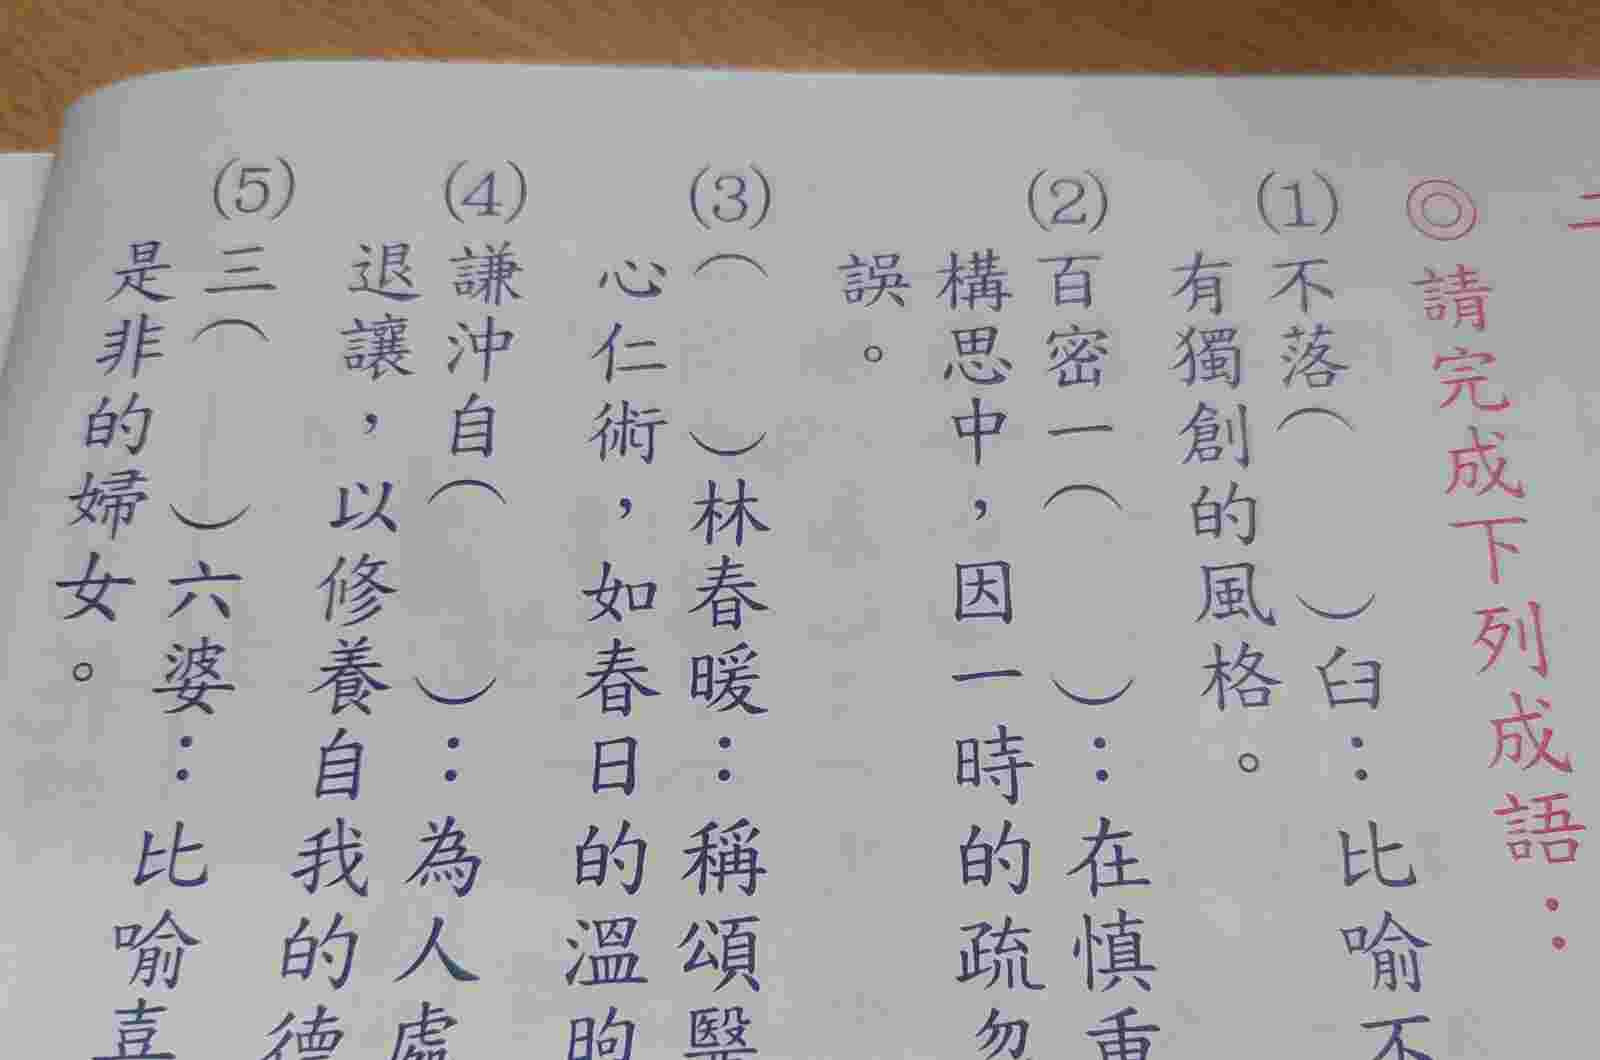 ◎請完成下列成語：
(1)不落（　　）臼：比喻不
有獨創的風格。
(2)百密一（　　）：在慎重
構思中，因一時的疏忽
誤。
(3)（　　）林春暖：稱頌醫
心仁術，如春日的溫昫
(4)謙沖自（　　）：為人處
退讓，以修養自我的德
(5)三（　　）六婆：比喻喜
是非的婦女。